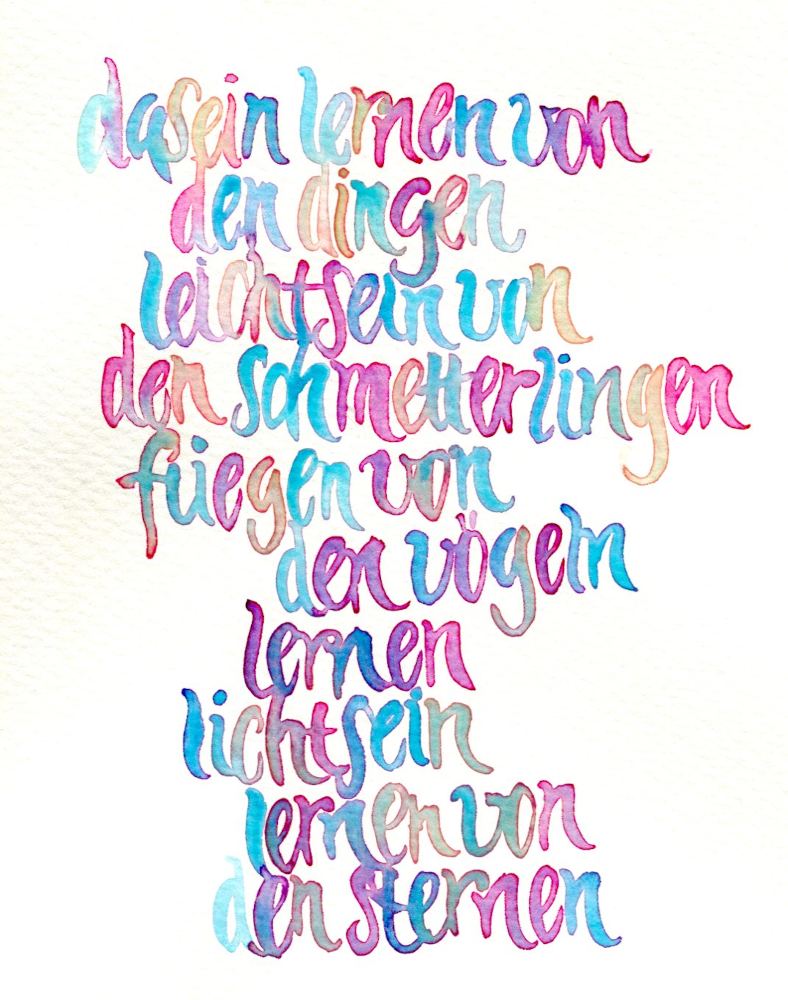 dasein lernen von
den dingen
leichtsein von
den schmetterlingen
fliegen von
den vögeln
lernen
lichtsein
lernen von
den sternen